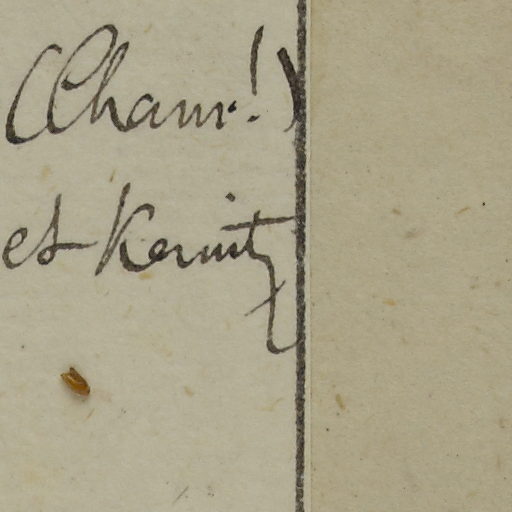 (Cham!)
et Kernitz